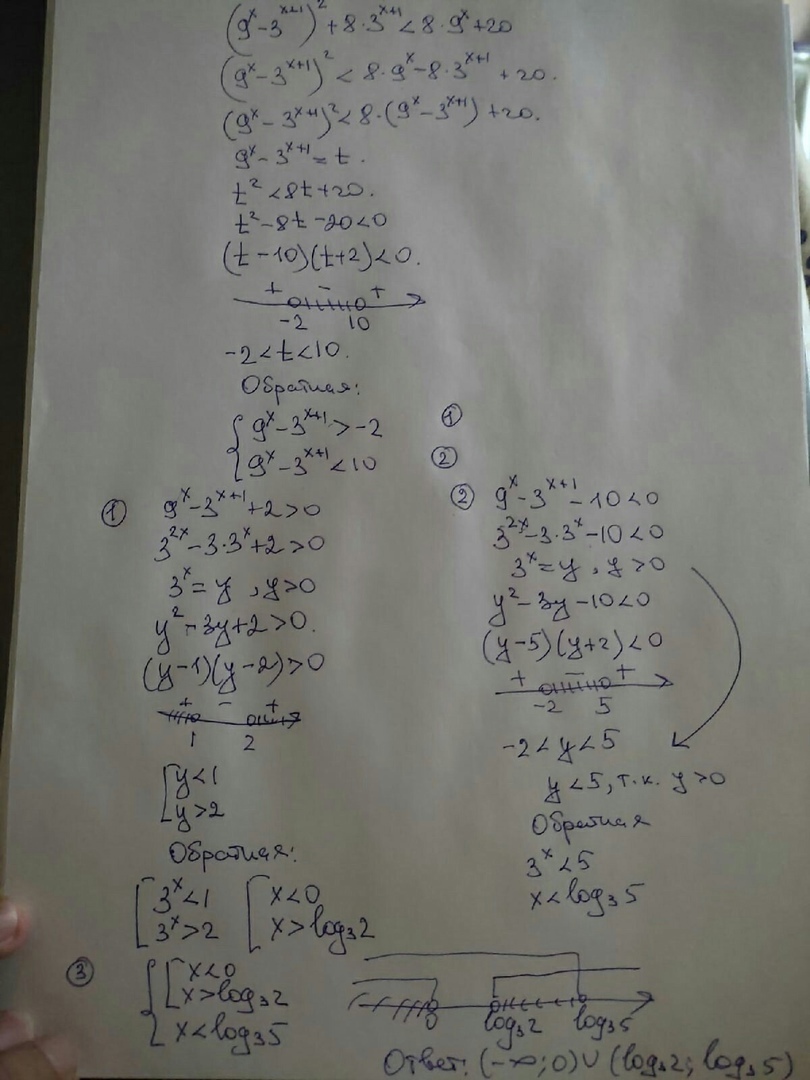 (9^x-3^{x+1})^2+8·3^{x+1}<8·9^x+20
(9^x-3^{x+1})^2<8·9^x-8·3^{x+1}+20.
(9^x-3^{x+1})^2<8·(9^x-3^{x+1})+20.
9^x-3^{x+1}=t.
t^2<8t+20.
t^2-8t-20<0
(t-10)(t+2)<0.
+ - +
-2 10
-2<t<10.
Обратная:
{ 9^x-3^{x+1}>-2 ①
9^x-3^{x+1}<10 ②
① 9^x-3^{x+1}+2>0
3^{2x}-3·3^x+2>0
3^x=y, y>0
y^2-3y+2>0.
(y-1)(y-2)>0
+ - +
1 2
[ y<1
y>2
Обратная:
[ 3^x<1 [ x<0
3^x>2 x>log₃2
② 9^x-3^{x+1}-10<0
3^{2x}-3·3^x-10<0
3^x=y, y>0
y^2-3y-10<0
(y-5)(y+2)<0
+ - +
-2 5
-2<y<5
y<5, т.к. y>0
Обратная
3^x<5
x<log₃5
③ { [ x<0
x>log₃2
x<log₃5
0 log₃2 log₃5
Ответ: (-∞;0)∪(log₃2; log₃5)